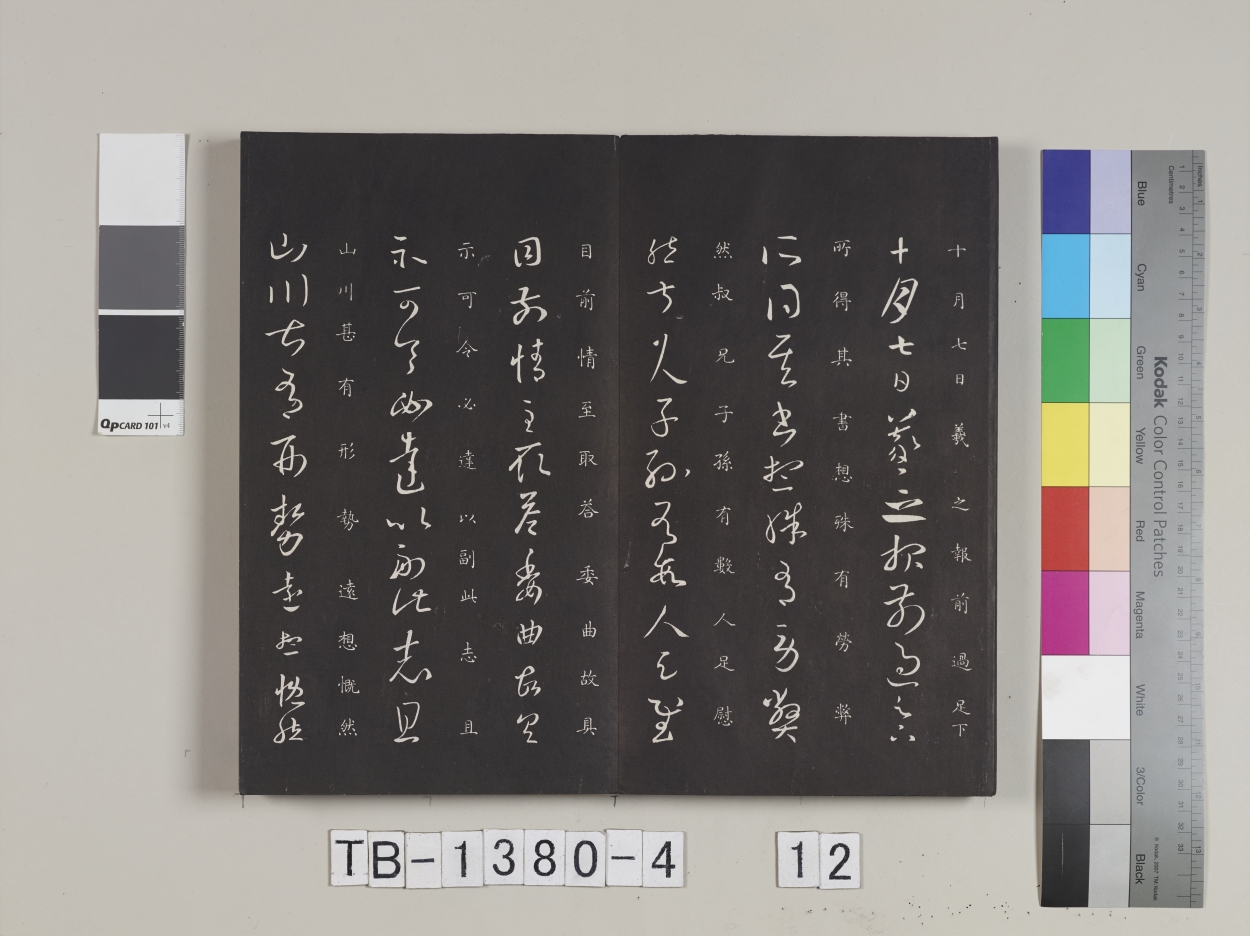 十月七日羲之報前過足下
十月七日羲之報前過足下
所得其書想殊有勞弊
所得其書想殊有勞弊
然叔兄子孫有數人足慰
然叔兄子孫有數人足慰
目前情至取荅委曲故具
目前情至取荅委曲故具
示可令必達以副此志且
示可令必達以副此志且
山川甚有形勢遠想慨然
山川甚有形勢遠想慨然
TB-1380-4
12
QPCARD 101 v4
Kodak Color Control Patches
Blue
Cyan
Green
Yellow
Red
Magenta
White
3/Color
Black
Inches
Centimetres
© Kodak, 2007 TM: Kodak